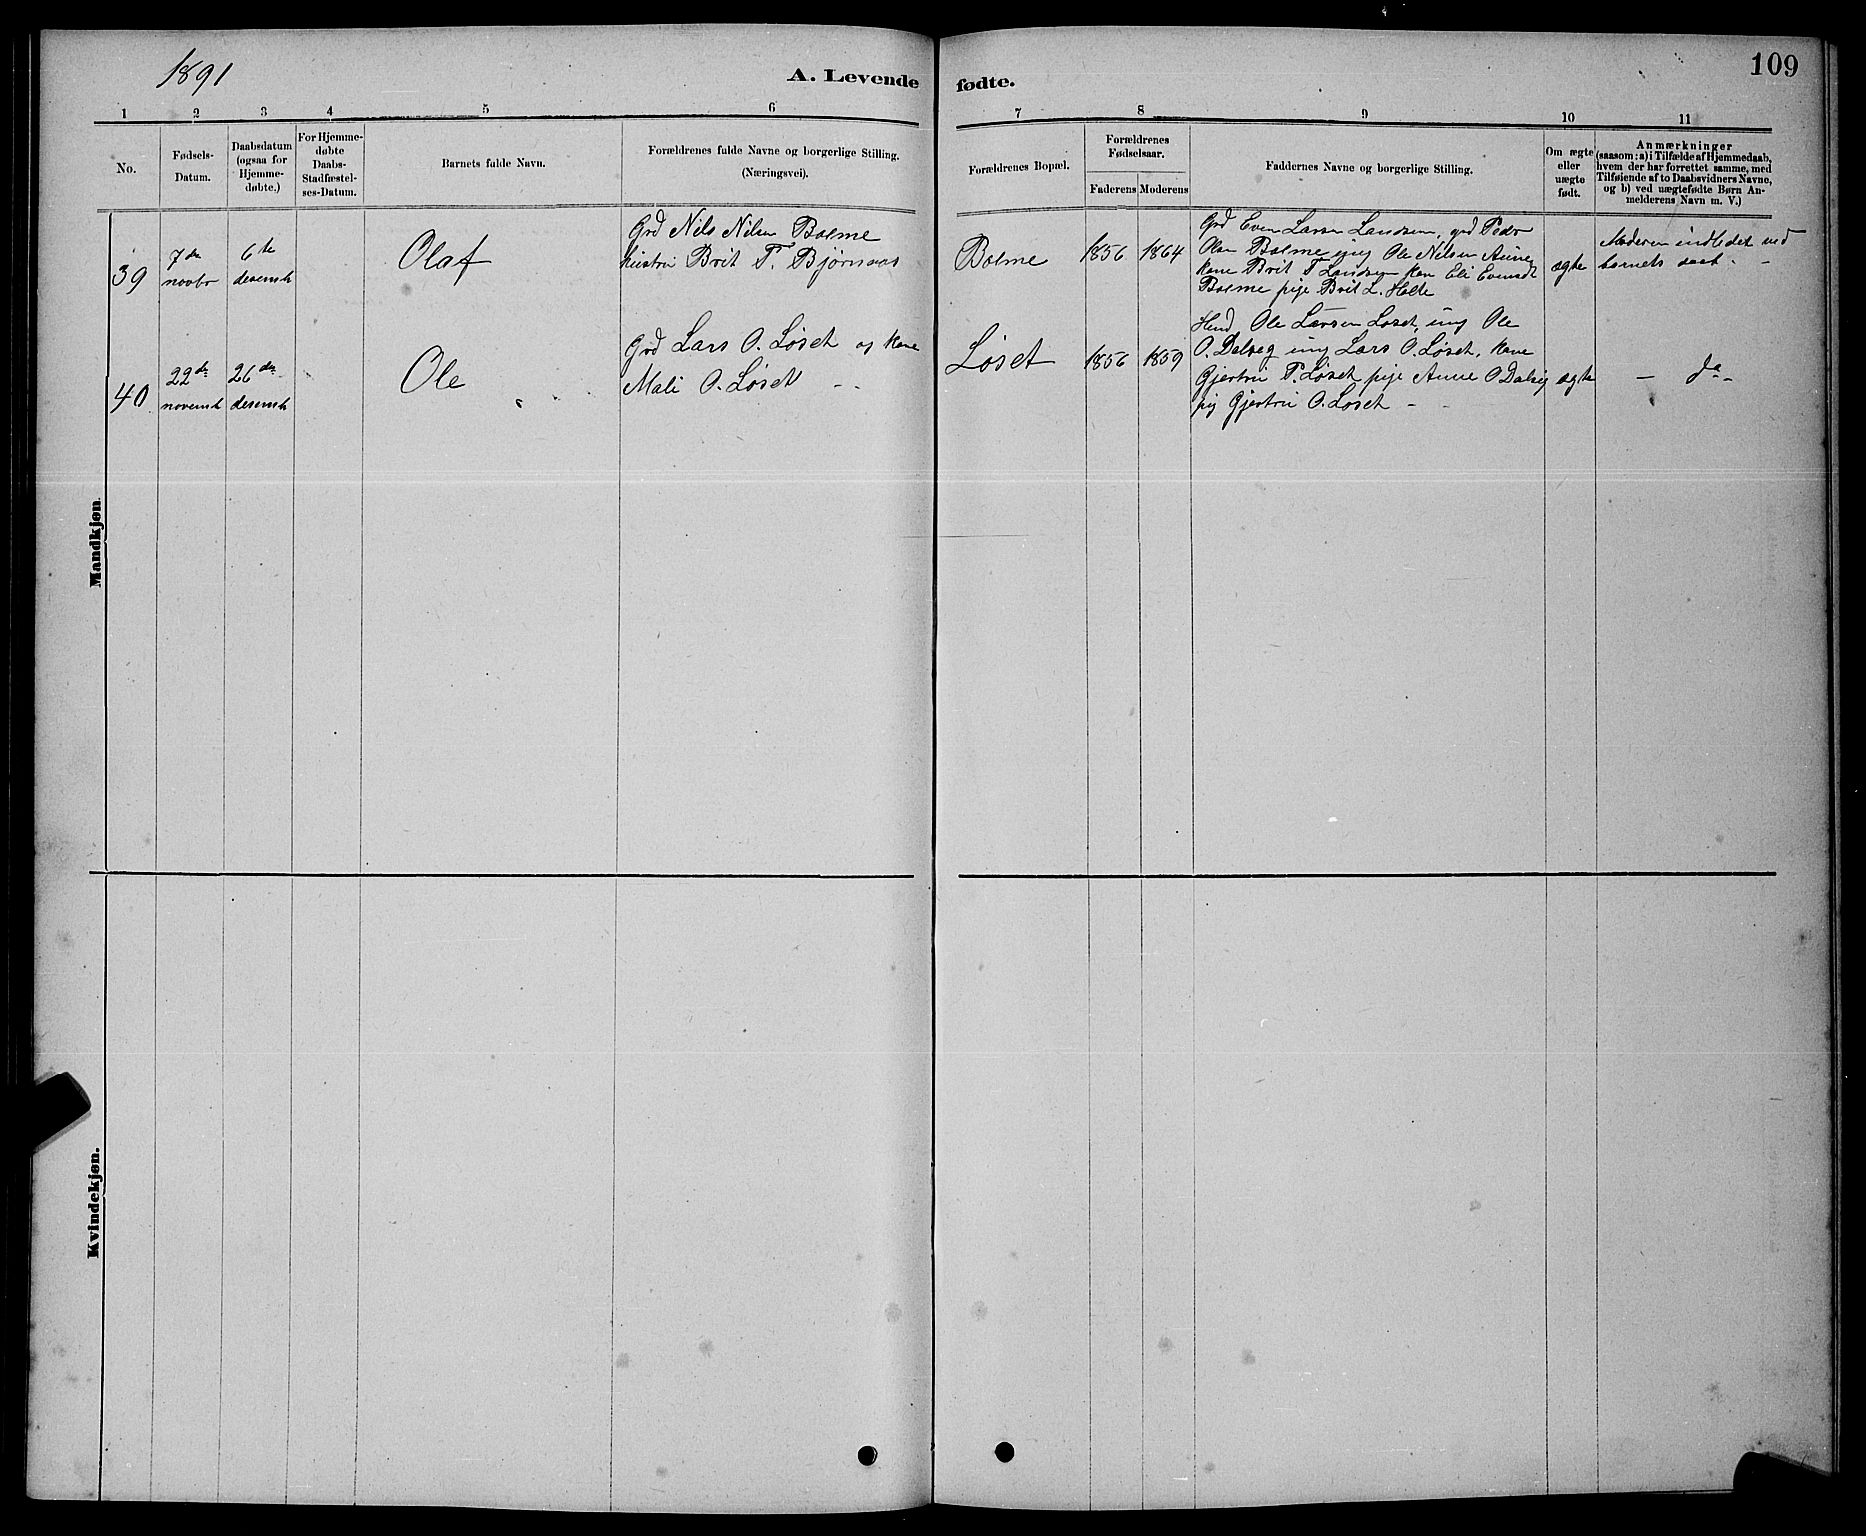 1891
A. Levende fødte.
109
1 2 3 4 5 6 7 8 9 10 11
No.
Fødsels-
Datum.
Daabsdatum
(ogsaa for
Hjemme-
døbte.)
For Hjemme-
døbte
Daabs-
Stadfæstel-
ses-Datum.
Barnets fulde Navn.
Forældrenes fulde Navne og borgerlige Stilling.
(Næringsvei).
Forældrenes Bopæl.
Forældrenes
Fødselsaar.
Faderens Moderens
Faddernes Navne og borgerlige Stilling.
Om ægte
eller
uægte
født.
Anmærkninger
(saasom: a) i Tilfælde af Hjemmedaab,
hvem der har forrettet samme, med
Tilføiende af to Daabsvidners Navne,
og b) ved uægtefødte Børn An-
melderens Navn m. V.)
Mandkjøn.
39
7de
novbr
6te
desemb
Olaf
Grd Nils Nilsen Bolme
hustru Brit T. Bjørnaas
Bolme
1856
1864
Grd Even Larsen Landsem, grd Peder
Olsen Bolme ung Ole Nilsen Aune
kone Brit T Landsem kone Eli Evensdt
Bolme pige Brit L. Holte
ægte
Moderen indledet ved
barnets daab. -
40
22de
novemb
26de
desemb
Ole
Grd Lars O. Løset og kone
Mali O. Løset - -
Løset
1856
1859
Ole Larsen Løset, ung Ole
O. Dalseg ung Lars O. Løset, kone
Gjertru T. Løset pige Anne O Dalseg
pig Gjertru O. Løset - -
ægte
- do -
Kvindekjøn.